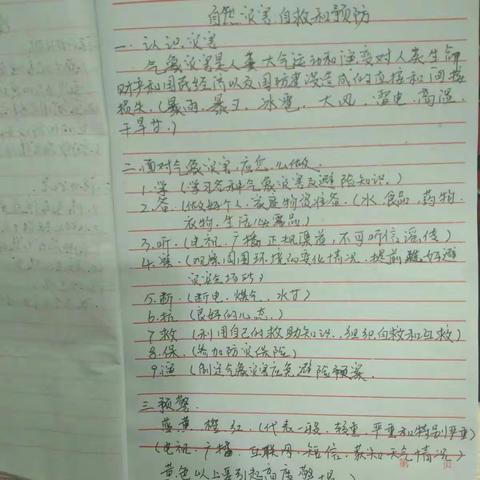 自然灾害自救和预防
一、认识灾害
气象灾害是人类大气运动和演变对人类生命
财产和国民经济以及国防建设造成的直接和间接
损失。(暴雨、暴
冰雹、大风、雷电、高温、
干旱等)
二、面对气象灾害,应怎么做.
1.学 (学习各种气象灾害及避险知识。)
2.备 (做好个人、家庭物资准备。(水、食品、药物、
衣物、生活必需品)
3.听.(电视、广播 正规渠道,不可听信谣传)
4.察.(观察周围环境的变化情况、提前
好避
灾安全场所)
5.断.(断电、煤气、水等)
6.抗 (良好的心态。)
7.救 (利用自己的救助知识、组织自救和互救)
8.保.(参加防灾保险)
9.
(制定气象灾害应急避险预案.
三、预警.
蓝 黄 橙 红.(代表一般、较重、严重和特别严重)
(电视、广播、互联网、短信、获知天气情况)
黄色以上要引起高度警惕.)
第 页